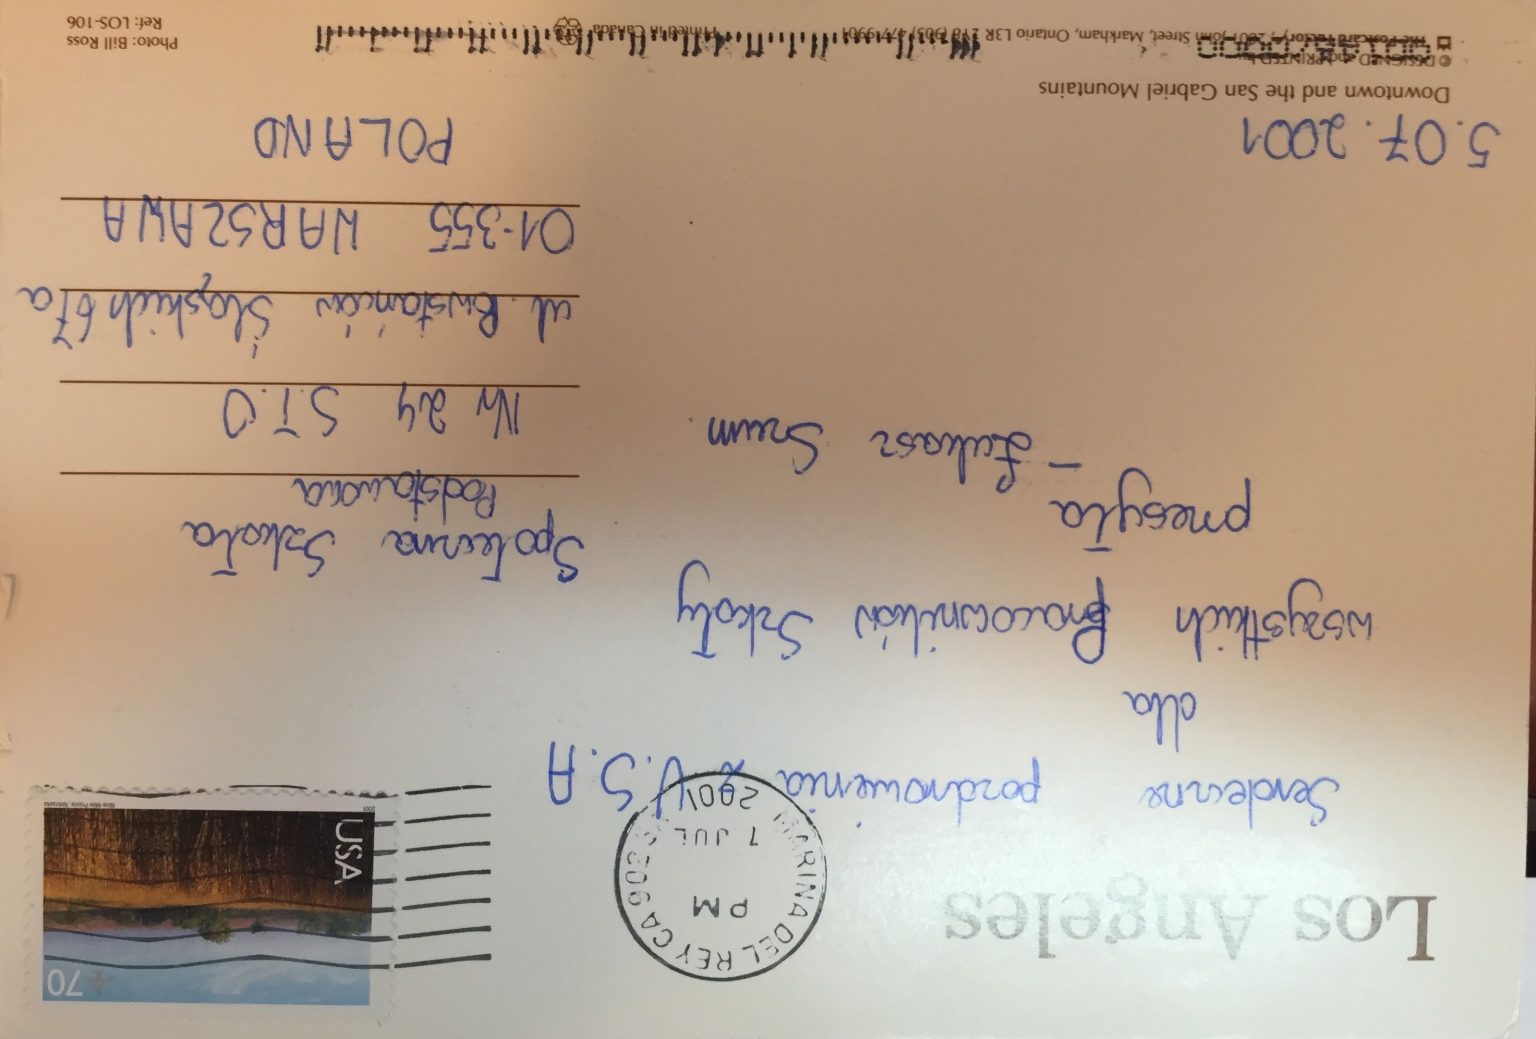 Los Angeles
MARINA DEL REY CA 902
PM
7 JUL
2001
USA
70
2001
Serdeczne pozdrowienia z U.S.A
dla
wszystkich Pracowników Szkoły
przesyła
- Łukasz Szum
5.07.2001
Społeczna Szkoła
Podstawowa
Nr 24 S.T.O
ul. Powstańców Śląskich 67a
01-355 WARSZAWA
POLAND
Downtown and the San Gabriel Mountains
© DESIGNED and PRINTED by
The Postcard Factory, 2801 John Street, Markham, Ontario L3R 2Y8 (905) 477-9901
Printed in Canada
Photo: Bill Ross
Ref: LOS-106